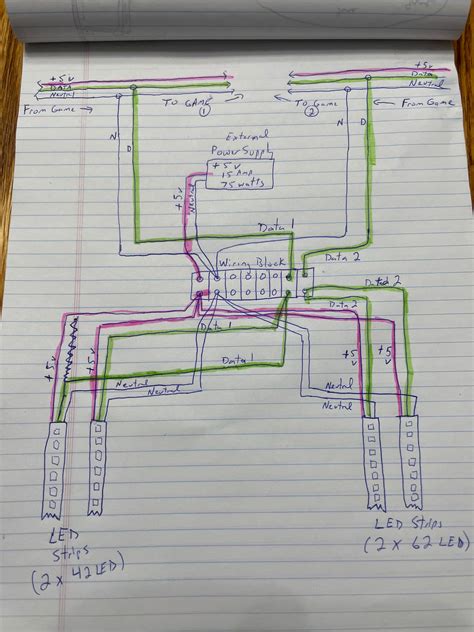 +5v
DATA
Neutral
From Game
TO GAME
1
+5v
Data
Neutral
TO Game
2
From Game
N
D
N
D
External
Power Supply
+5v
15 Amp
75 watts
+5v
Data 1
Data 2
Wiring Block
Data 1
Data 2
Data 2
Data 1
+5v
+5v
+5v
+5v
Neutral
Neutral
Neutral
Neutral
LED
Strips
(2 x 42 LED)
LED Strips
(2 x 62 LED)